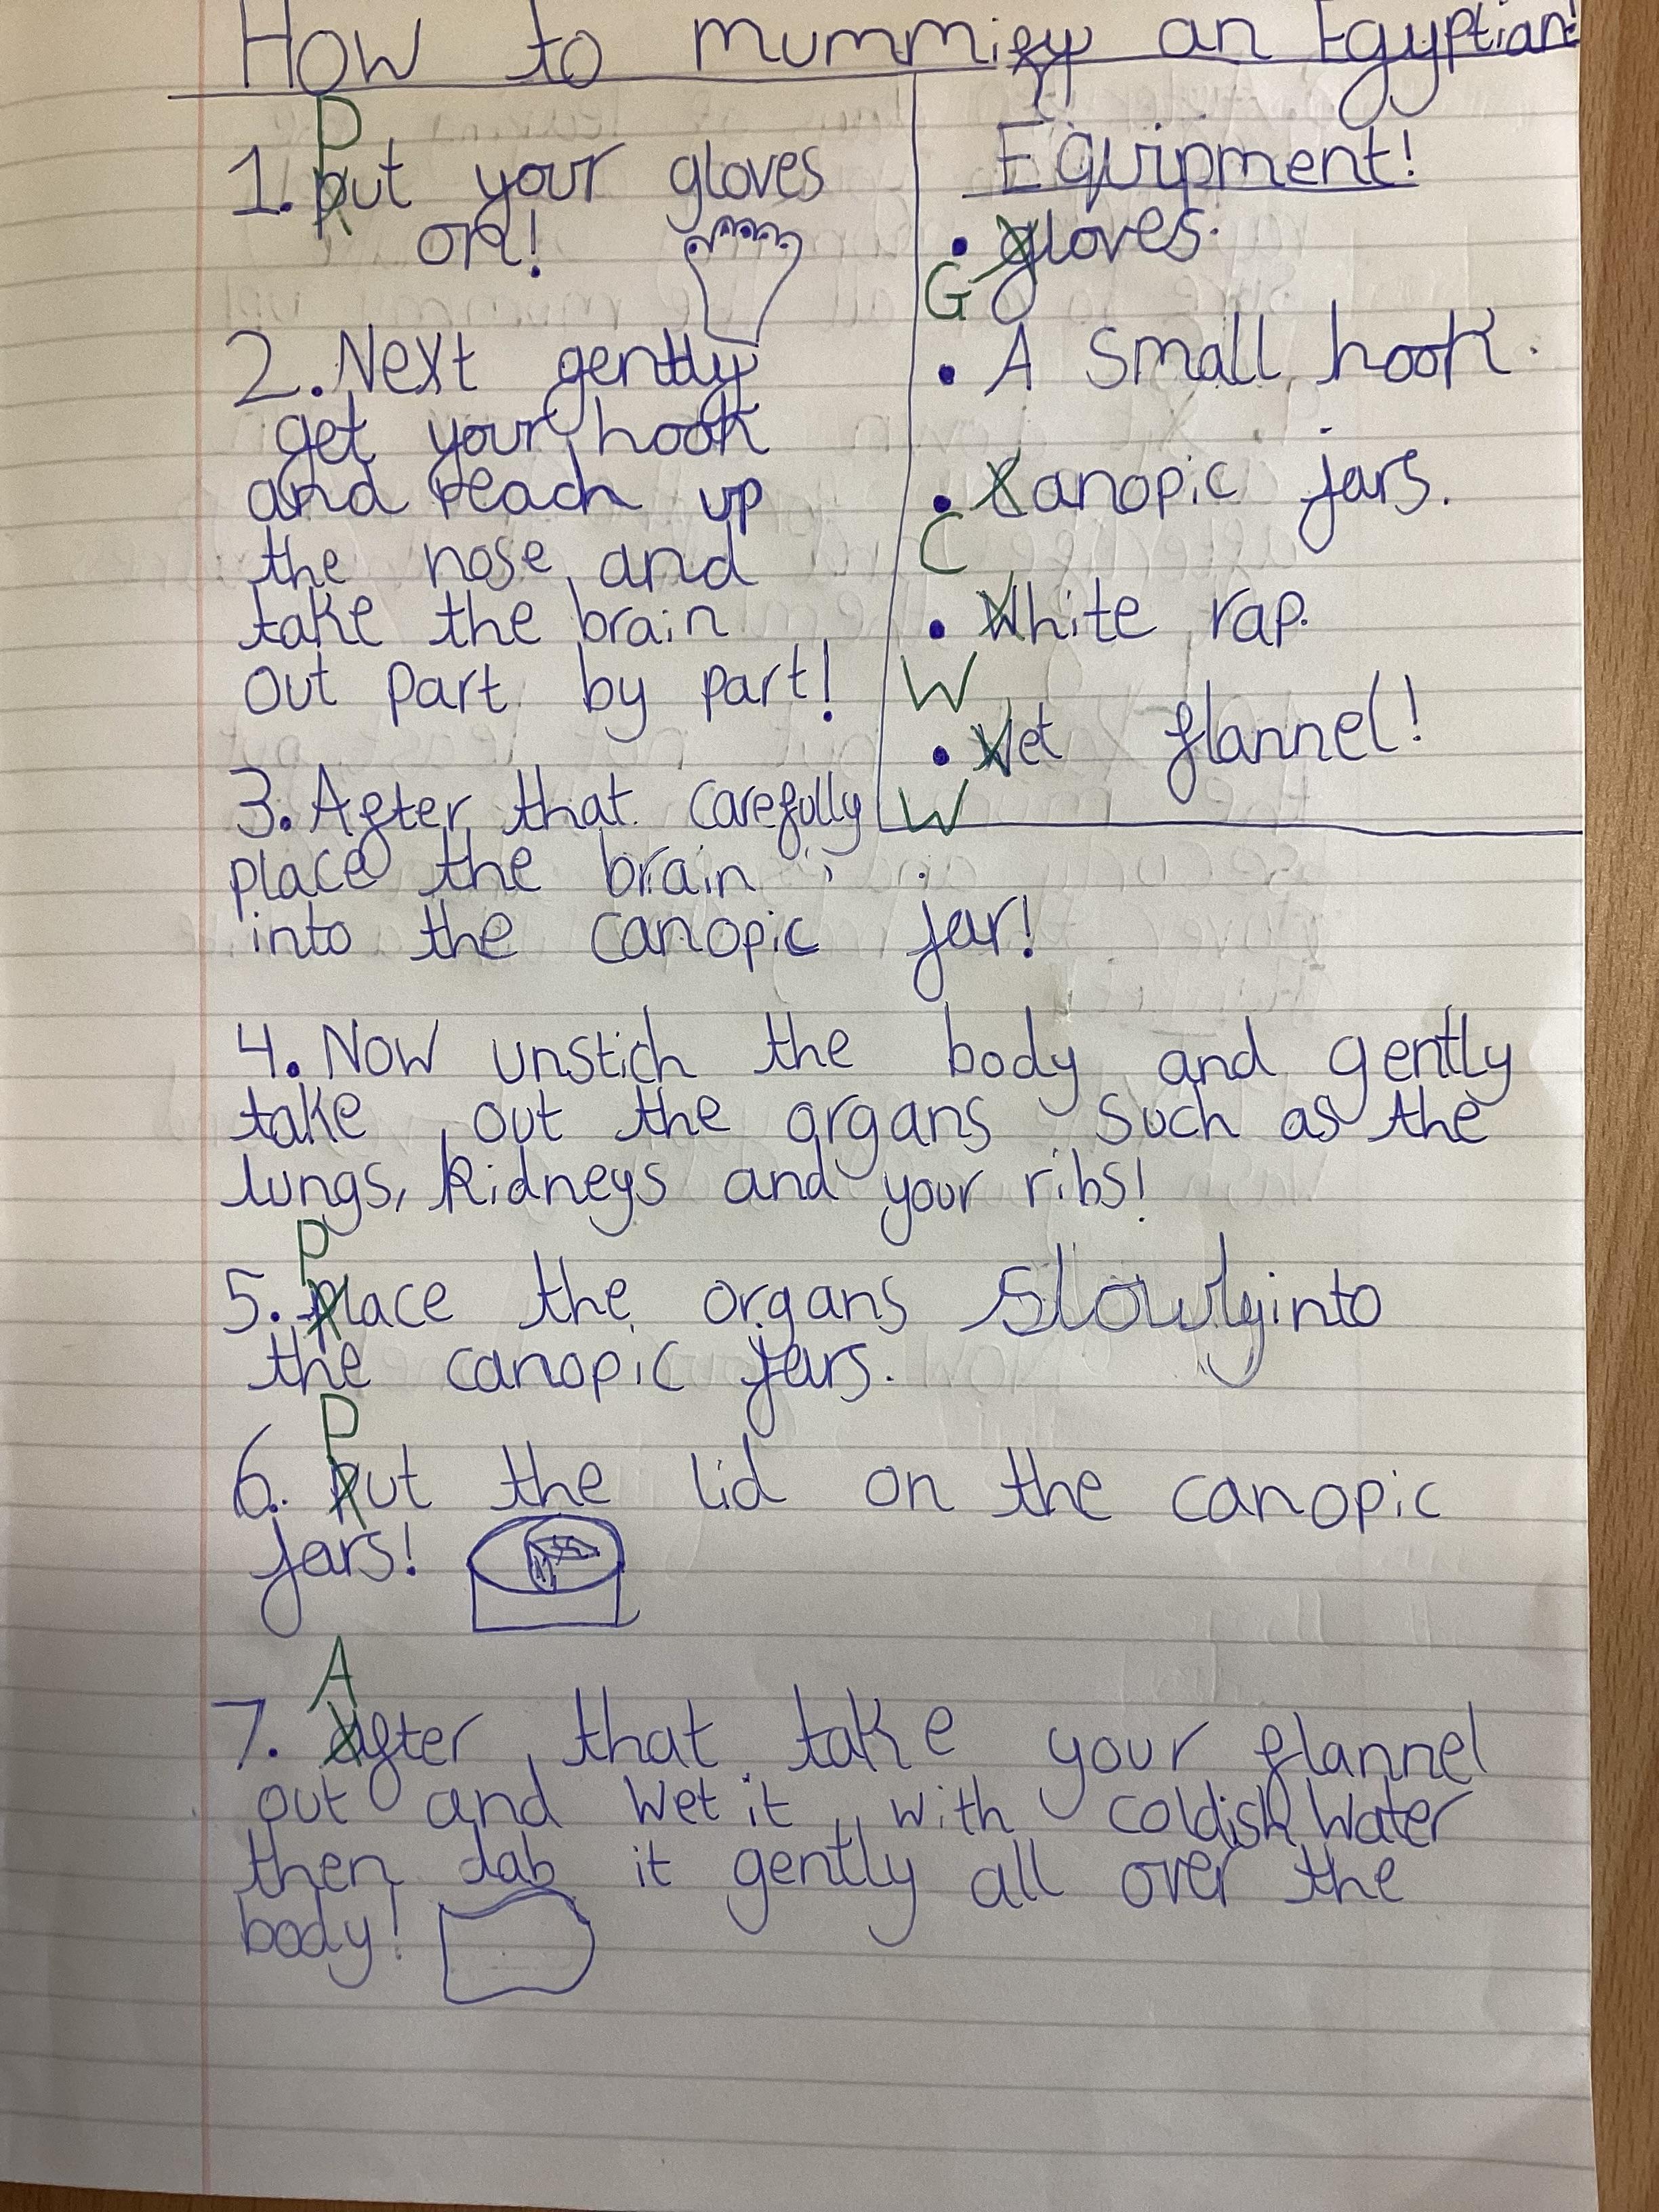 How to mummify an Egyptian!
P
1. put your gloves
on!
2. Next gently
get your hook
and reach up
the nose and
take the brain
out part by part!
3. After that carefully
place the brain
into the canopic jar!
Equipment!
• gloves.
G
• A small hook.
• canopic jars.
C
• White rap.
W
• Wet flannel!
W
4. Now unstich the body and gently
take out the organs such as the
lungs, kidneys and your ribs!
P
5. place the organs slowly into
the canopic jars.
P
6. put the lid on the canopic
jars!
A
7. after that take your flannel
out and wet it with coldish water
then dab it gently all over the
body!